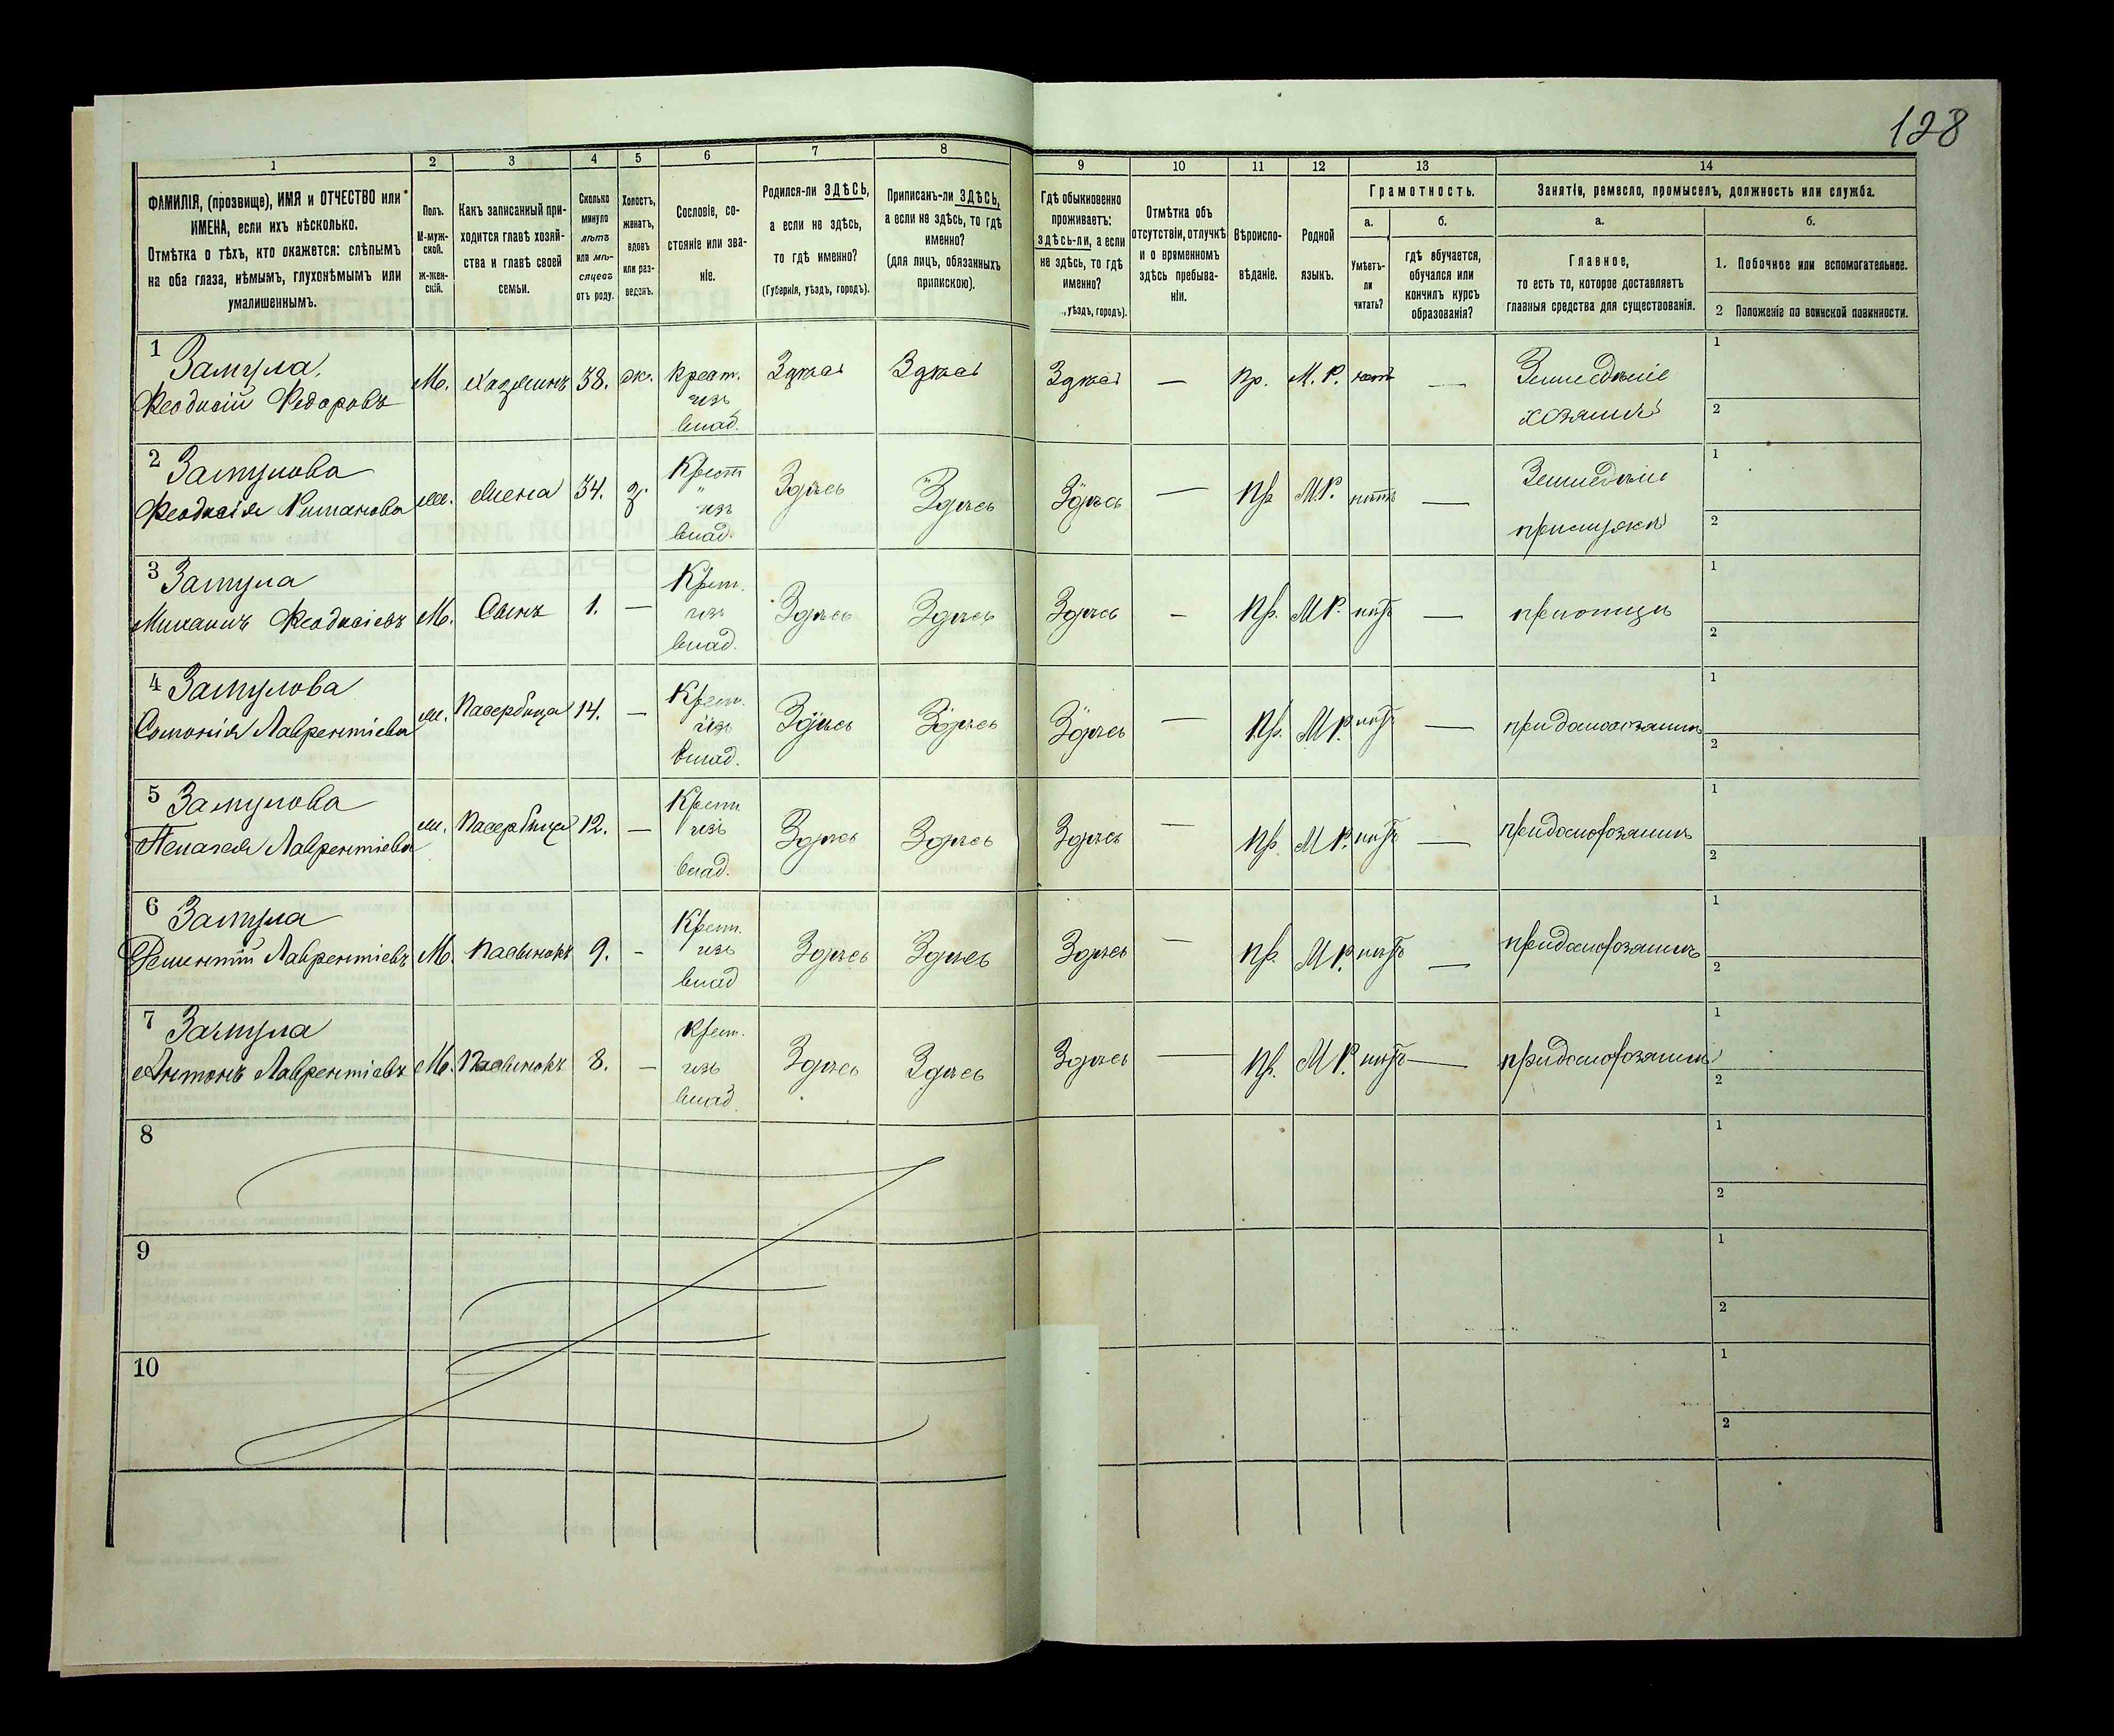 128
1 2 3 4 5 6 7 8 9 10 11 12 13 14
ФАМИЛІЯ, (прозвище), ИМЯ и ОТЧЕСТВО или
ИМЕНА, если ихъ нѣсколько.
Отмѣтка о тѣхъ, кто окажется: слѣпымъ
на оба глаза, нѣмымъ, глухонѣмымъ или
умалишеннымъ.
Полъ.
М-муж-
ской.
ж-жен-
скій.
Какъ записанный при-
ходится главѣ хозяй-
ства и главѣ своей
семьи.
Сколько
минуло
лѣтъ
или мѣ-
сяцевъ
отъ роду.
Холостъ,
женатъ,
вдовъ
или раз-
веденъ.
Сословіе, со-
стояніе или зва-
ніе.
Родился-ли ЗДѢСЬ,
а если не здѣсь,
то гдѣ именно?
(Губернія, уѣздъ, городъ).
Приписанъ-ли ЗДѢСЬ,
а если не здѣсь, то гдѣ
именно?
(для лицъ, обязанныхъ
припискою).
Гдѣ обыкновенно
проживаетъ:
здѣсь-ли, а если
не здѣсь, то гдѣ
именно?
, уѣздъ, городъ).
Отмѣтка объ
отсутствіи, отлучкѣ
и о временномъ
здѣсь пребыва-
ніи.
Вѣроиспо-
вѣданіе.
Родной
языкъ.
Грамотность.
а.
Умѣетъ-
ли
читать?
б.
гдѣ обучается,
обучался или
кончилъ курсъ
образованія?
Занятіе, ремесло, промыселъ, должность или служба.
а.
Главное,
то есть то, которое доставляетъ
главныя средства для существованія.
б.
1. Побочное или вспомогательное.
2 Положеніе по воинской повинности.
1 Замула
Феодосій Федоровъ М. Хозяинъ 38. ж. Крест. изъ влад. Здѣсь Здѣсь Здѣсь — Пр. М. Р. нѣтъ — Земледѣліе хозяинъ 1 2
2 Замулова
Феодосія Романова ж. Жена 34. з. Крест. изъ влад. Здѣсь Здѣсь Здѣсь — Пр. М.Р. нѣтъ — Земледѣліе 1 2
3 Замула
Михаилъ Феодосіевъ М. Сынъ 1. — Крест. изъ влад. Здѣсь Здѣсь Здѣсь — Пр. М Р. нѣтъ — 1 2
4 Замулова
Соломонія Лаврентіева ж. Пасербица 14. — Крест. изъ влад. Здѣсь Здѣсь Здѣсь — Пр. М Р. нѣтъ — 1 2
5 Замулова
Пелагея Лаврентіева ж. Пасербица 12. — Крест. изъ влад. Здѣсь Здѣсь Здѣсь — Пр. М Р. нѣтъ — 1 2
6 Замула
Лаврентіевъ М. Пасынокъ 9. - Крест. изъ влад Здѣсь Здѣсь Здѣсь — Пр. М Р. нѣтъ — 1 2
7 Замула
Антонъ Лаврентіевъ М. Пасынокъ 8. — Крест. изъ влад. Здѣсь Здѣсь Здѣсь — Пр. М Р. нѣтъ — 1 2
8 1 2
9 1 2
10 1 2